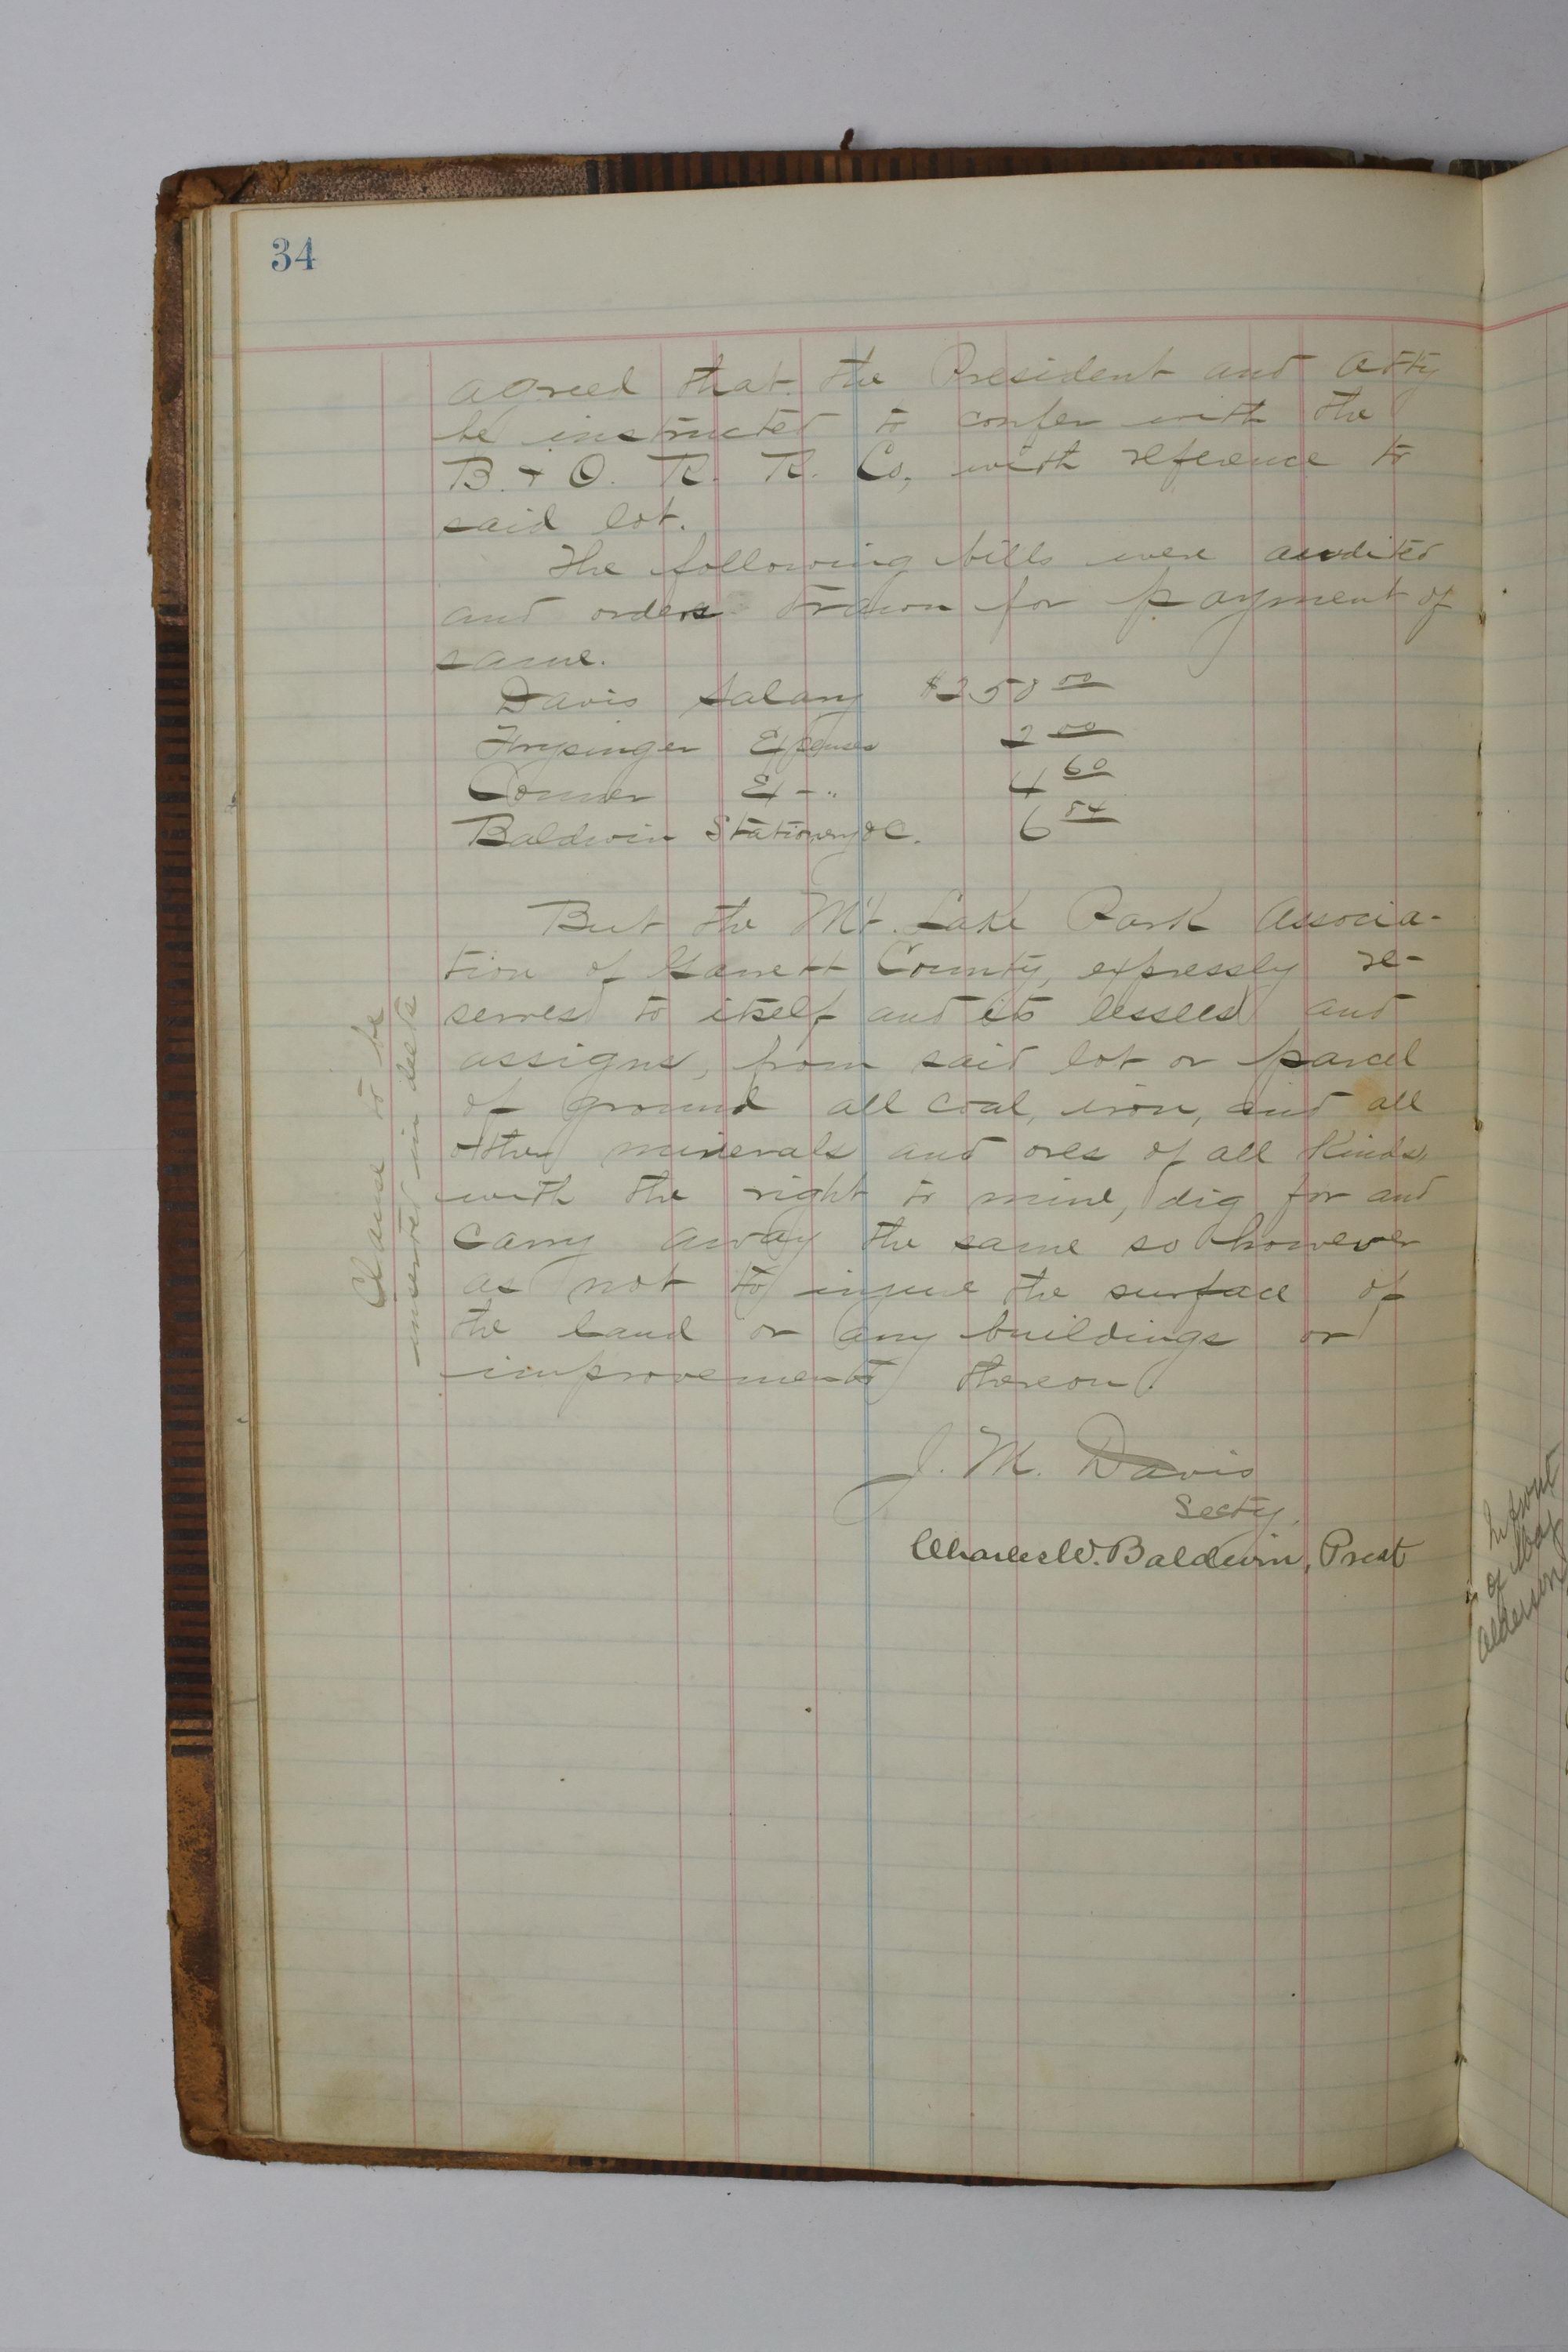 34
agreed that the President and Atty
be instructed to confer with the
B. & O. R. R. Co, with reference to
said lot.
The following bills were audited
and orders drawn for payment of
same.
Davis Salary $250 00
Frysinger Expenses 2 00
Conner Ex - " 4 60
Baldwin Stationery &C. 6 54
But the Mt. Lake Park Associa-
tion of Garrett County, expressly re-
serves to itself and its lessees and
assigns, from said lot or parcel
of ground all coal, iron, and all
other minerals and ores of all Kinds,
with the right to mine, dig for and
carry away the same so however
as not to injure the surface of
the land or any buildings or
improvements thereon.
Clause to be
inserted in deeds
J. M. Davis
Secty.
Charles W. Baldwin, Prest
In front
of
Alderson